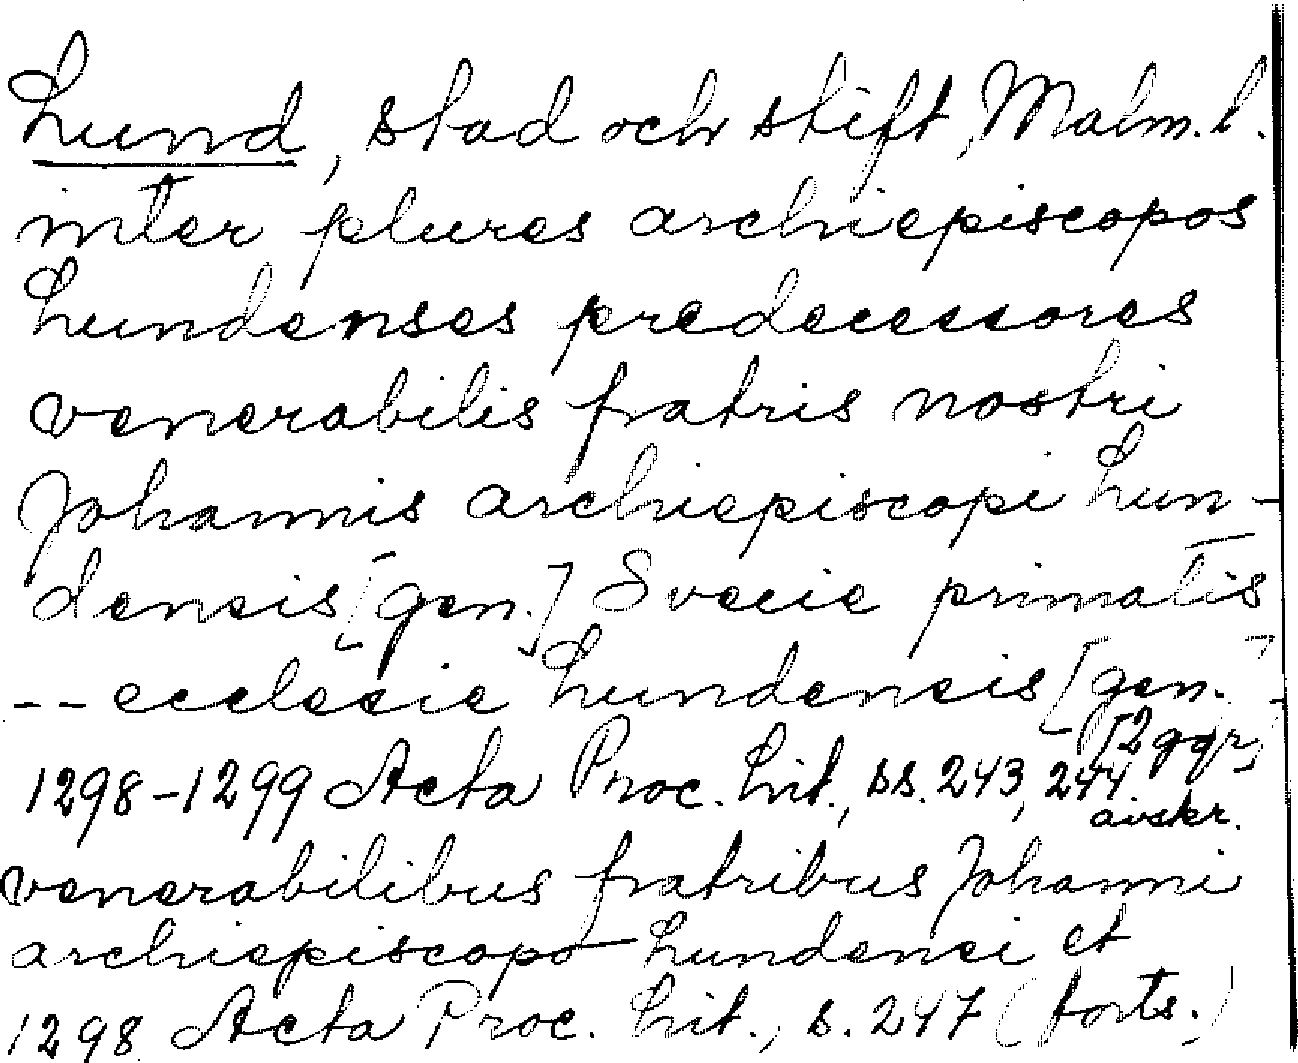 Lund, stad och stift, Malm. l.
inter plures archiepiscopos
Lundenses predecessores
venerabilis fratris nostri
Johannis archiepiscopi Lun-
densis [gen.] Svecie primatis
-- ecclesie Lundensis [gen.]
[2 ggr]
1298-1299 Acta Proc. Lit., ss. 243, 244
avskr.
venerabilibus fratribus Johanni
archiepiscopo Lundensi et
1298 Acta Proc. Lit., s. 247 (forts.)